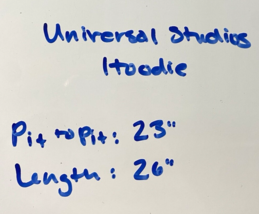 Universal Studios
Hoodie
Pit to Pit: 23"
Length: 26"